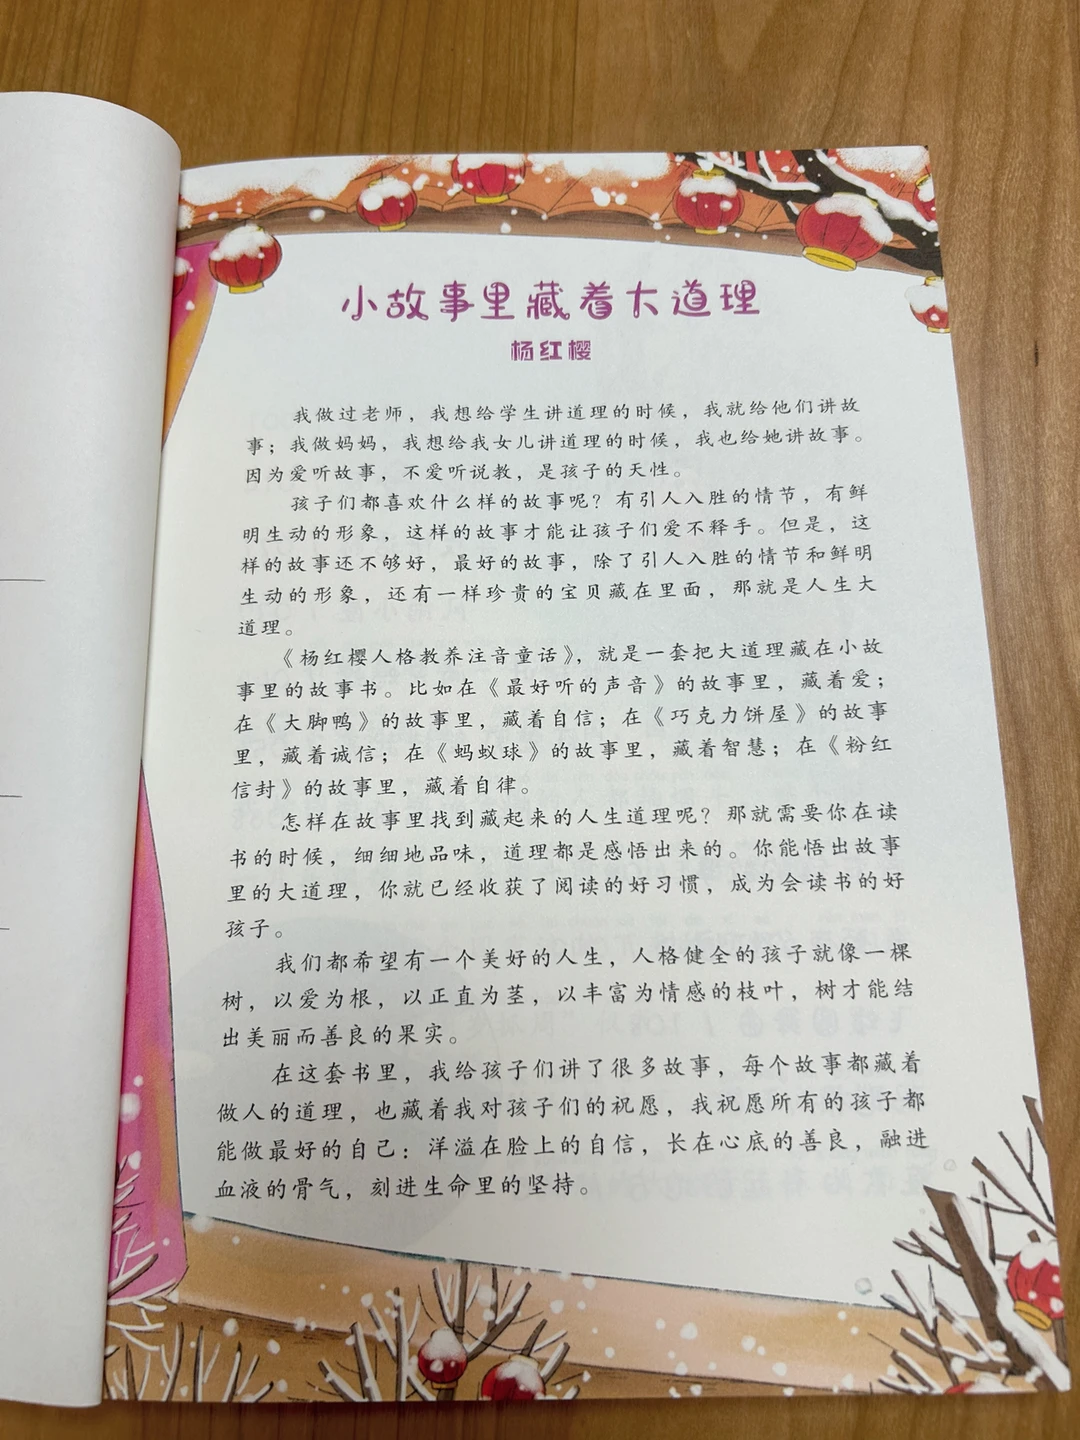 小故事里藏着大道理
杨红樱
我做过老师，我想给学生讲道理的时候，我就给他们讲故
事；我做妈妈，我想给我女儿讲道理的时候，我也给她讲故事。
因为爱听故事，不爱听说教，是孩子的天性。
孩子们都喜欢什么样的故事呢？有引人入胜的情节，有鲜
明生动的形象，这样的故事才能让孩子们爱不释手。但是，这
样的故事还不够好，最好的故事，除了引人入胜的情节和鲜明
生动的形象，还有一样珍贵的宝贝藏在里面，那就是人生大
道理。
《杨红樱人格教养注音童话》，就是一套把大道理藏在小故
事里的故事书。比如在《最好听的声音》的故事里，藏着爱；
在《大脚鸭》的故事里，藏着自信；在《巧克力饼屋》的故事
里，藏着诚信；在《蚂蚁球》的故事里，藏着智慧；在《粉红
信封》的故事里，藏着自律。
怎样在故事里找到藏起来的人生道理呢？那就需要你在读
书的时候，细细地品味，道理都是感悟出来的。你能悟出故事
里的大道理，你就已经收获了阅读的好习惯，成为会读书的好
孩子。
我们都希望有一个美好的人生，人格健全的孩子就像一棵
树，以爱为根，以正直为茎，以丰富为情感的枝叶，树才能结
出美丽而善良的果实。
在这套书里，我给孩子们讲了很多故事，每个故事都藏着
做人的道理，也藏着我对孩子们的祝愿，我祝愿所有的孩子都
能做最好的自己：洋溢在脸上的自信，长在心底的善良，融进
血液的骨气，刻进生命里的坚持。